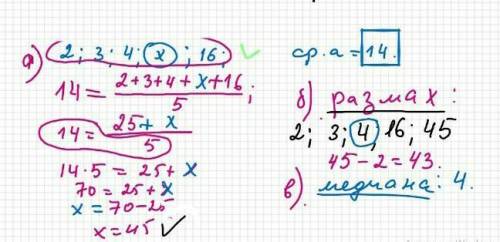 а) 2; 3; 4; x; 16.
14 = (2+3+4+x+16)/5;
14 = (25+x)/5
14·5 = 25+x
70 = 25+x
x = 70-25
x = 45
ср.а = 14.
б) размах:
2; 3; 4, 16; 45
45-2 = 43.
в) медиана: 4.